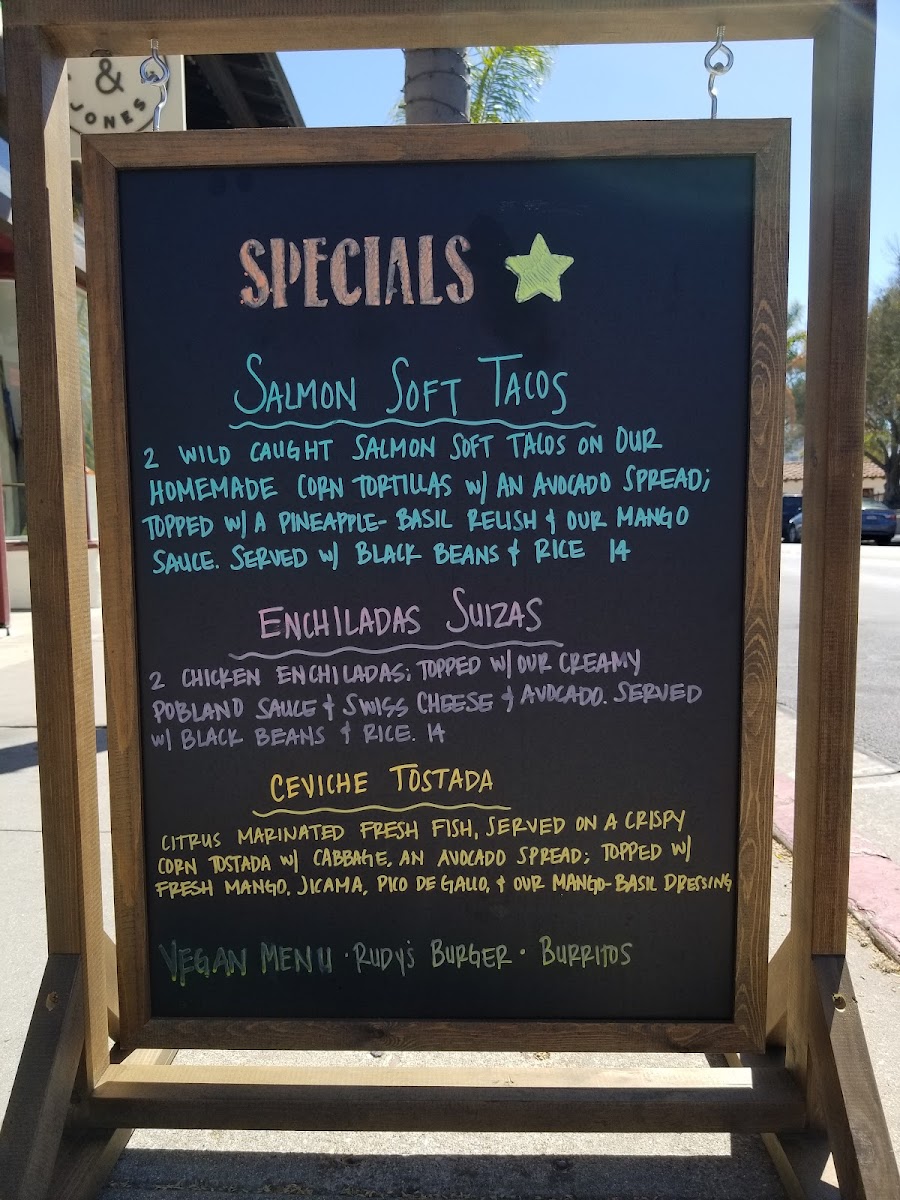 &
JONES
SPECIALS
SALMON SOFT TACOS
2 WILD CAUGHT SALMON SOFT TACOS ON OUR
HOMEMADE CORN TORTILLAS W/ AN AVOCADO SPREAD;
TOPPED W/ A PINEAPPLE-BASIL RELISH & OUR MANGO
SAUCE. SERVED W/ BLACK BEANS & RICE 14
ENCHILADAS SUIZAS
2 CHICKEN ENCHILADAS; TOPPED W/ OUR CREAMY
POBLANO SAUCE & SWISS CHEESE & AVOCADO. SERVED
W/ BLACK BEANS & RICE. 14
CEVICHE TOSTADA
CITRUS MARINATED FRESH FISH, SERVED ON A CRISPY
CORN TOSTADA W/ CABBAGE, AN AVOCADO SPREAD; TOPPED W/
FRESH MANGO, JICAMA, PICO DE GALLO, & OUR MANGO-BASIL DRESSING
VEGAN MENU · RUDY'S BURGER · BURRITOS